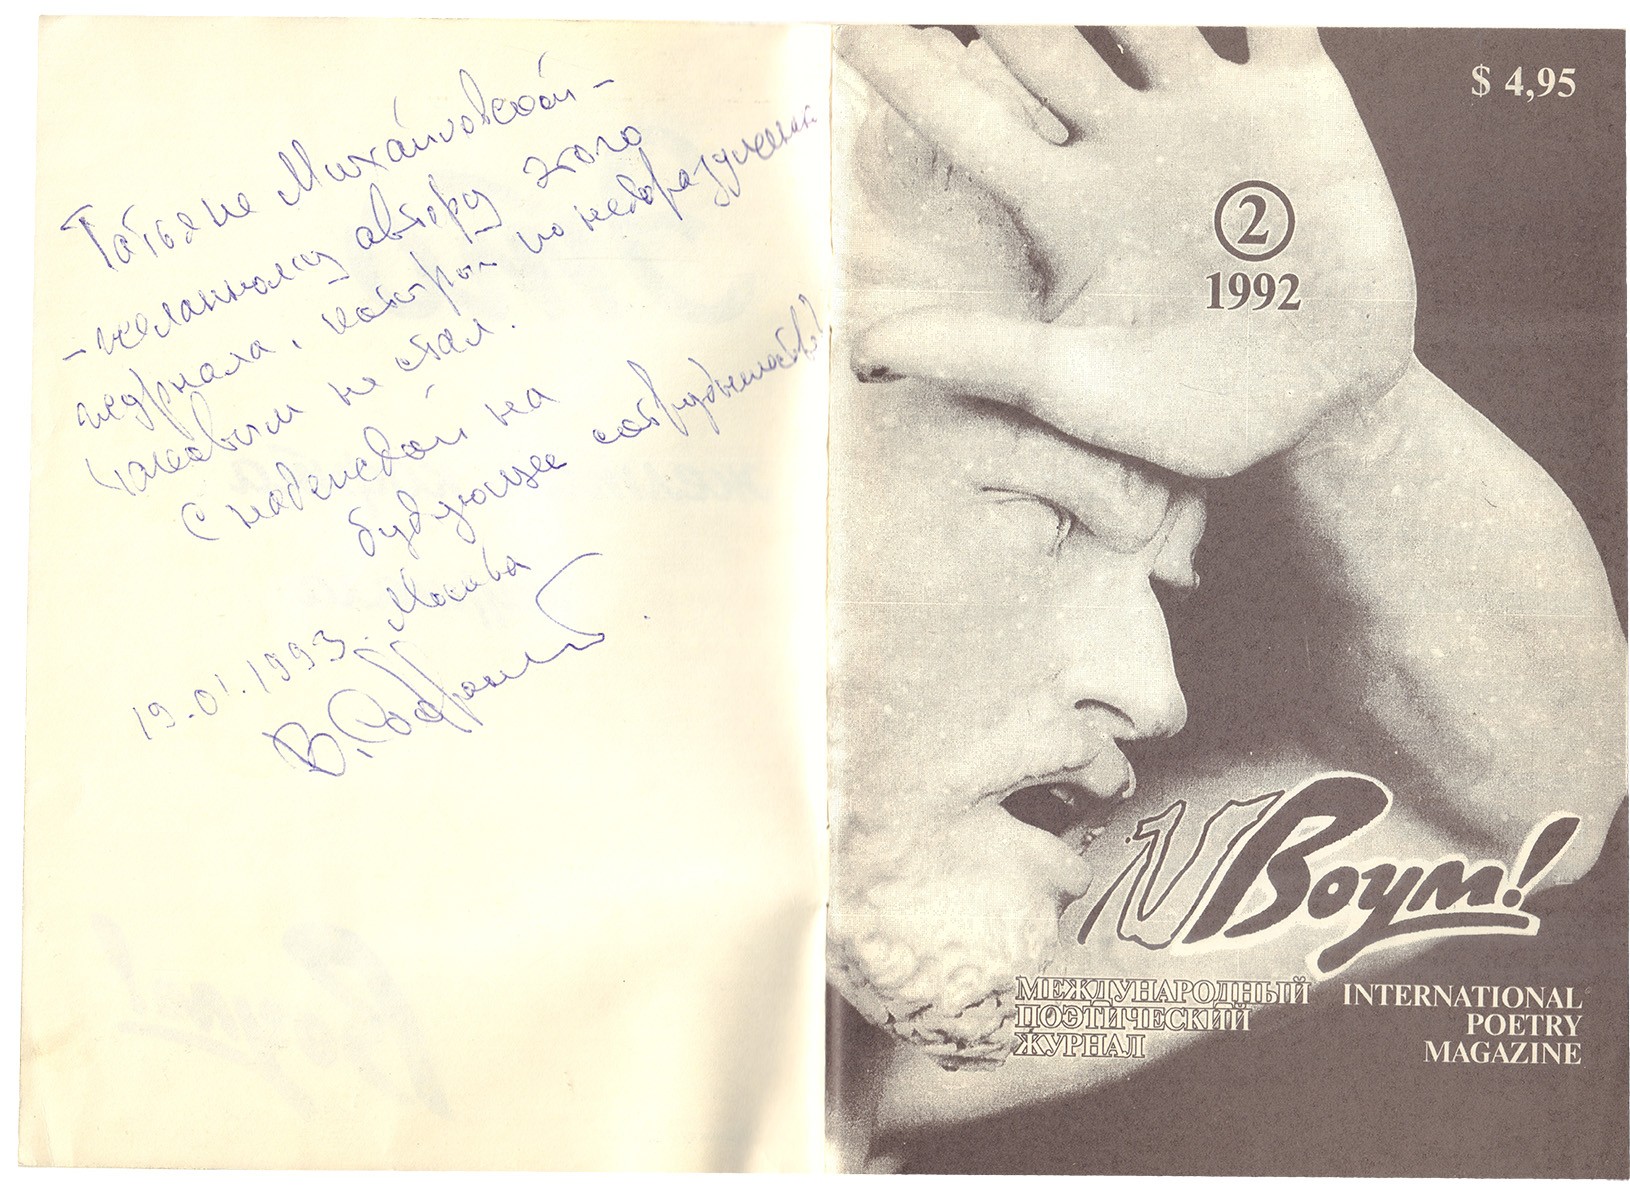 Татьяне Михайловской –
– желанному автору этого
журнала, который по недоразумению
таковым не стал.
С надеждой на
будущее сотрудничество!
19.01.1993. Москва
$ 4,95
2
1992
Воум!
МЕЖДУНАРОДНЫЙ
ПОЭТИЧЕСКИЙ
ЖУРНАЛ
INTERNATIONAL
POETRY
MAGAZINE